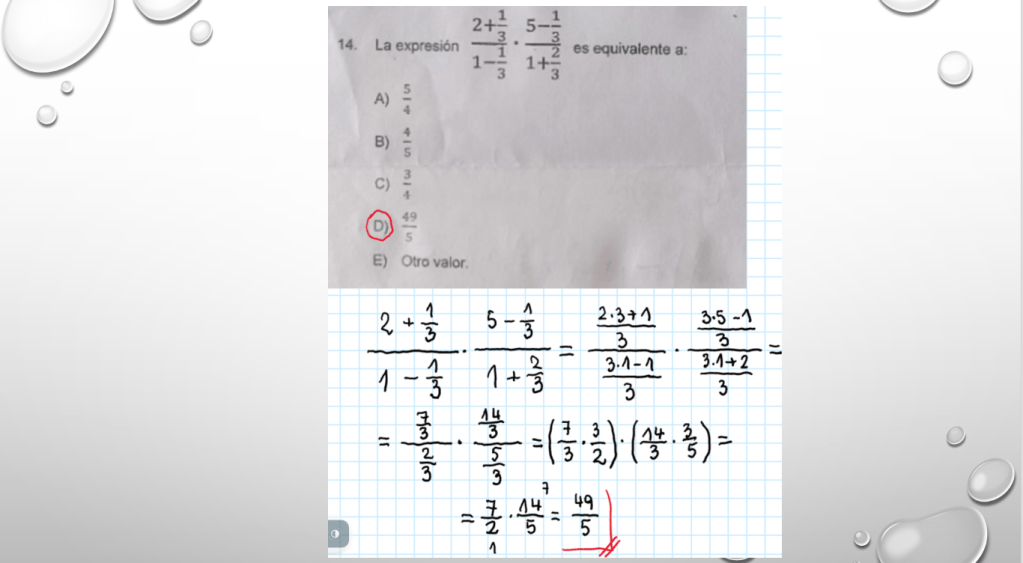 14. La expresión (2+1/3)/(1−1/3) · (5−1/3)/(1+2/3) es equivalente a:
A) 5/4
B) 4/5
C) 3/4
D) 49/5
E) Otro valor.
(2 + 1/3)/(1 − 1/3) · (5 − 1/3)/(1 + 2/3) = ((2·3+1)/3)/((3·1−1)/3) · ((3·5−1)/3)/((3·1+2)/3) =
= (7/3)/(2/3) · (14/3)/(5/3) = (7/3 · 3/2) · (14/3 · 3/5) =
= 7/2 · 14/5 = 49/5
7
1